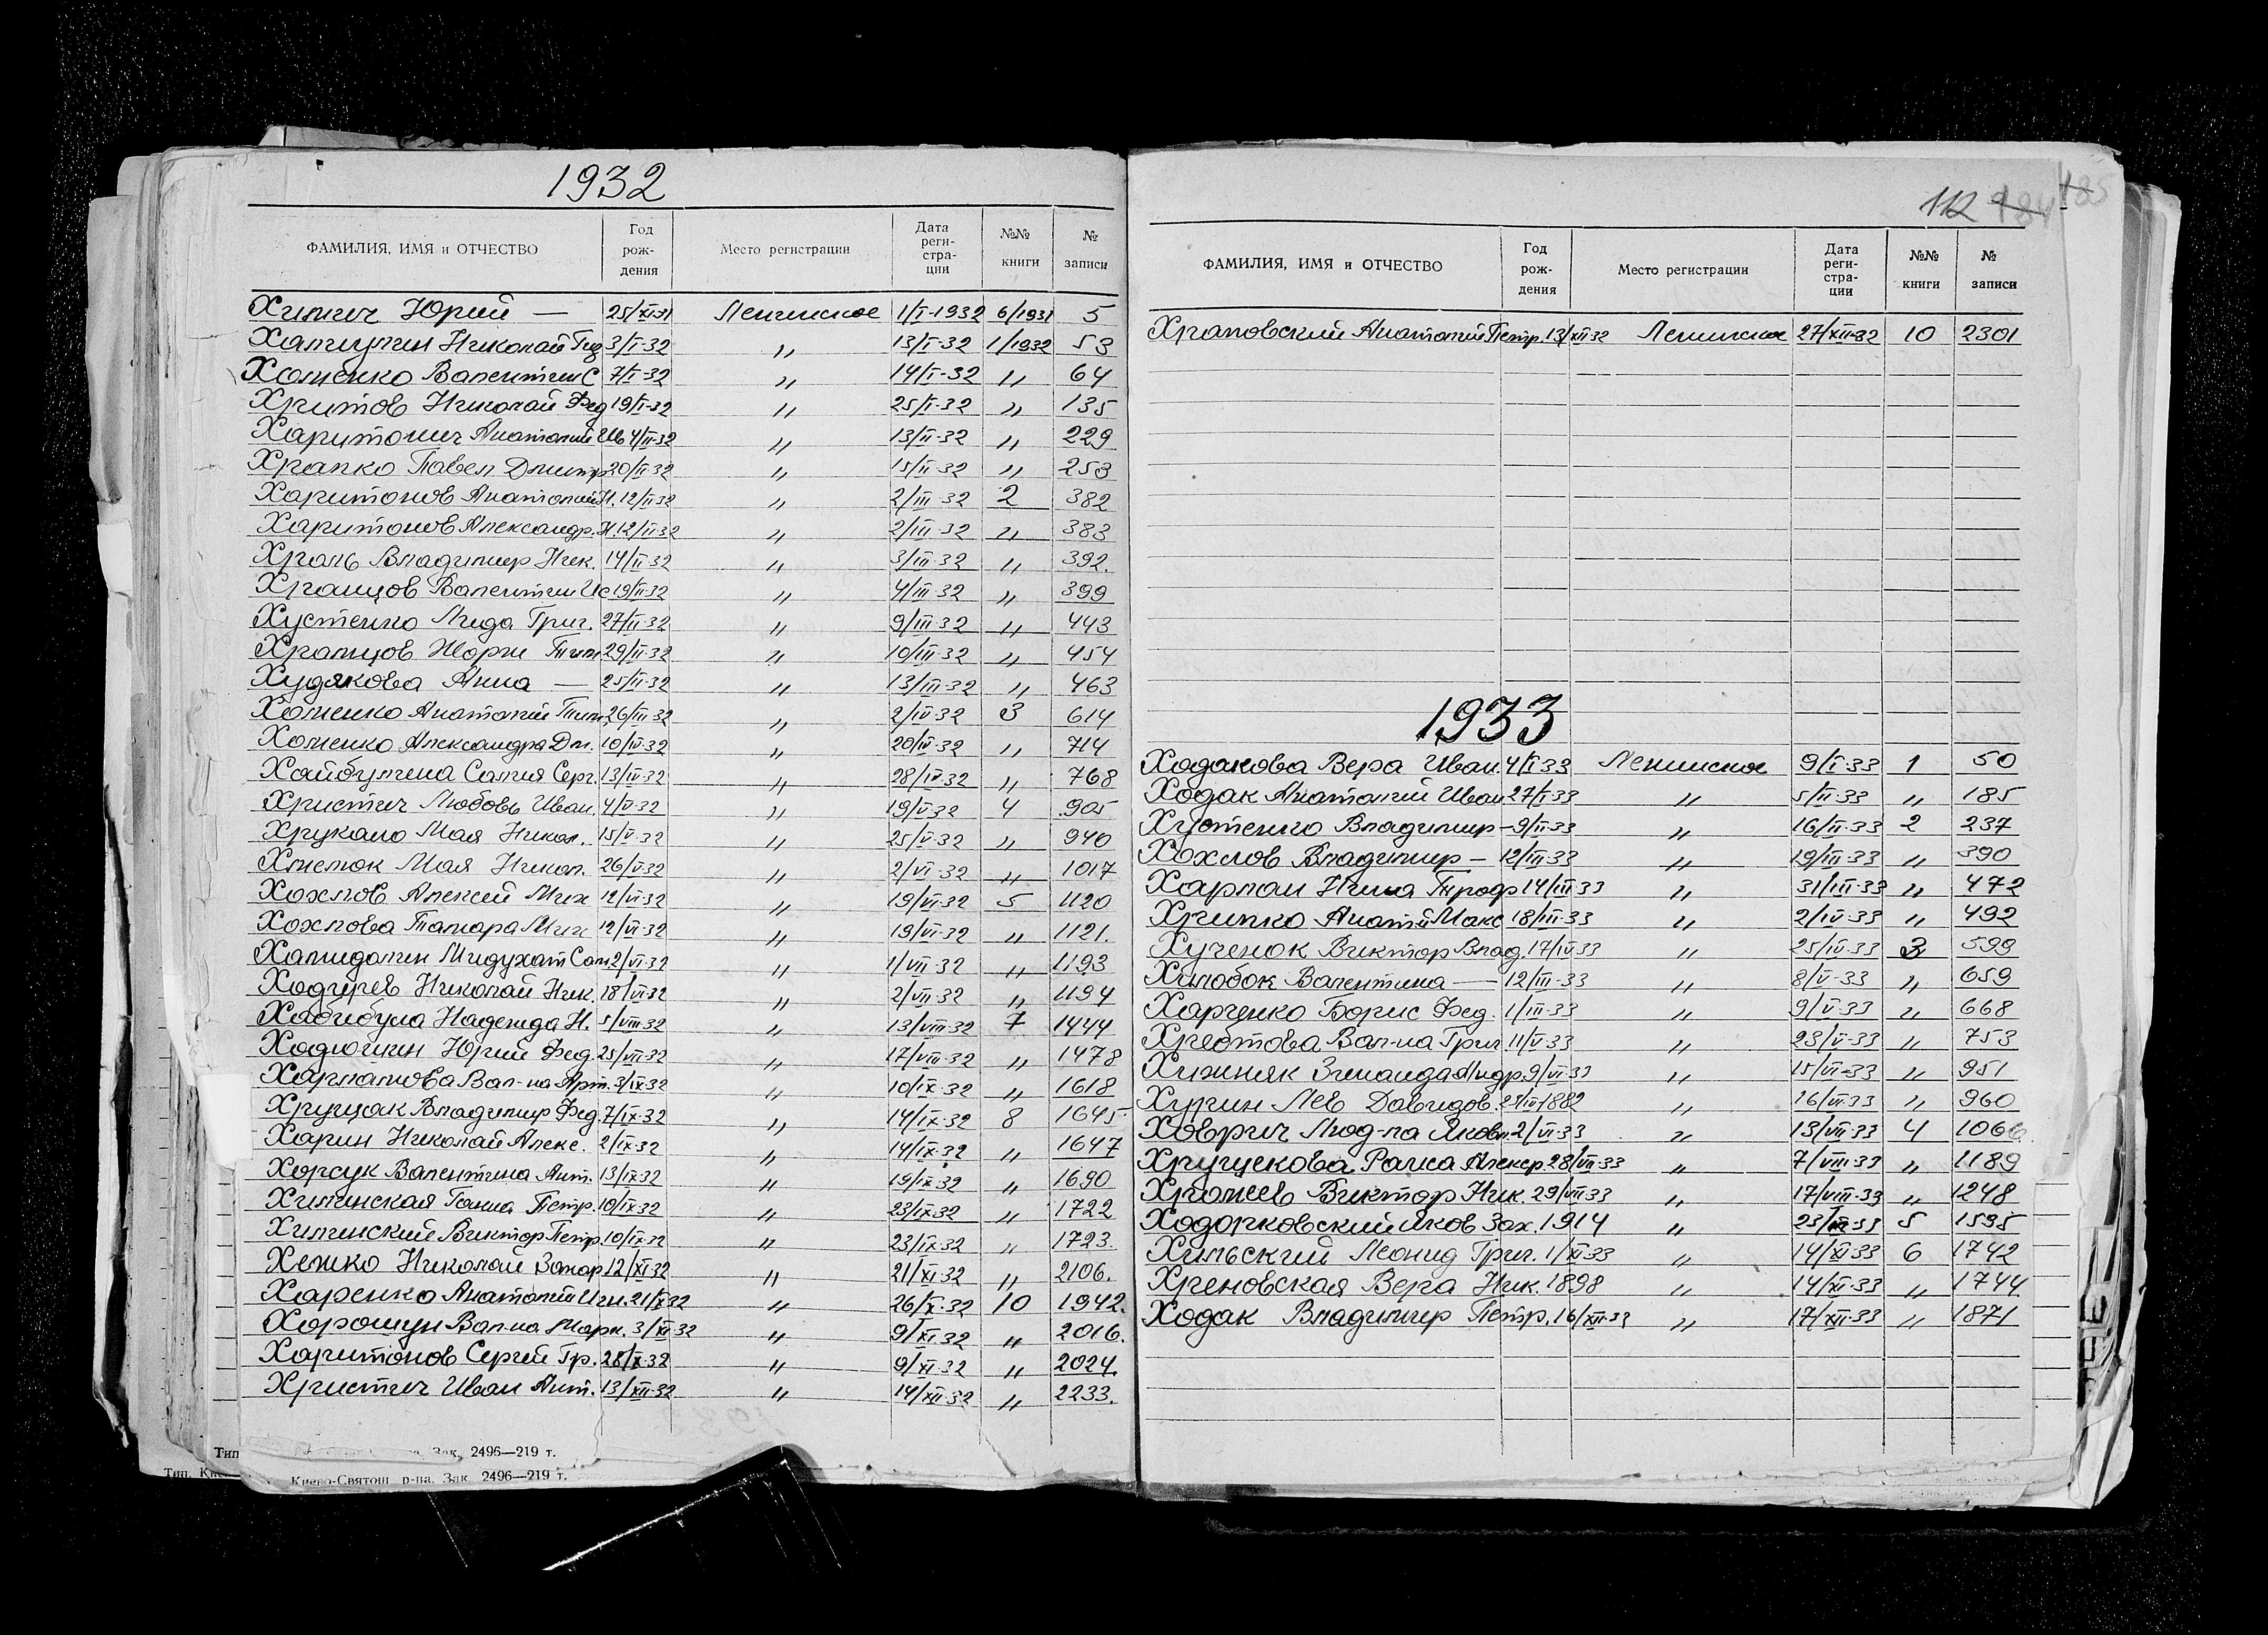 1932
ФАМИЛИЯ, ИМЯ и ОТЧЕСТВО Год рождения Место регистрации Дата регистрации №№ книги № записи
Химич Юрий — 25/XI-31 Ленинское 1/I-1932 6/1931 5
Халиулин Николай 3/I-32 " 13/I-32 1/1932 53
Хоменко Валентин С 7/I-32 " 14/I-32 " 64
Хритов Николай Фед 19/I-32 " 25/I-32 " 135
Харитонич Анатолий Ив 4/II-32 " 13/II-32 " 229
Храпко Павел Дмитр 20/II-32 " 15/II-32 " 253
Харитонов Анатолий Н. 12/II-32 " 2/III-32 2 382
Харитонов Александр. Н. 12/II-32 " 2/III-32 " 383
Храль Владимир Ник. 14/II-32 " 3/III-32 " 392.
Хранцов Валентин Ис 19/II-32 " 4/III-32 " 399
Хустенко Лида Григ. 27/II-32 " 9/III-32 " 443
Храмцов Жорж Тим 29/II-32 " 10/III-32 " 454
Худякова Анна — 25/II-32 " 13/III-32 " 463
Хоменко Анатолий Тим. 26/III-32 " 2/IV-32 3 614
Хоменко Александра Дм. 10/IV-32 " 20/IV-32 " 714
Хайбулина Салия Серг. 13/IV-32 " 28/IV-32 " 768
Христич Любовь Иван. 4/V-32 " 19/V-32 4 905
Хрукало Мая Никол. 15/V-32 " 25/V-32 " 940
Хмелюк Мая Никол. 26/V-32 " 2/VI-32 " 1017
Хохлов Алексей Мих 12/VI-32 " 19/VI-32 5 1120
Хохлова Тамара Мих 12/VI-32 " 19/VI-32 " 1121.
Халидалин Мидухат Сам 2/VI-32 " 1/VII-32 " 1193
Ходырев Николай Ник. 18/VI-32 " 2/VII-32 " 1194
Хабибула Надежда Н. 5/VIII-32 " 13/VIII-32 7 1444
Ходюшин Юрий Фед. 25/VII-32 " 17/VIII-32 " 1478
Харламова Вал-на Арт. 3/IX-32 " 10/IX-32 " 1618
Хрущак Владимир Фед. 7/IX-32 " 14/IX-32 8 1645
Харин Николай Алекс. 2/IX-32 " 14/IX-32 " 1647
Хорсук Валентина Ант. 13/IX-32 " 19/IX-32 " 1690
Хилинская Галина Петр. 10/IX-32 " 23/IX-32 " 1722
Хилинский Виктор Петр. 10/IX-32 " 23/IX-32 " 1723.
Хежко Николай Захар 12/XI-32 " 21/XI-32 " 2106.
Харенко Анатолий Игн. 21/X-32 " 26/X-32 10 1942.
Хорошун Вал-на Марк. 3/XI-32 " 9/XI-32 " 2016.
Харитонов Сергей Гр. 28/X-32 " 9/XI-32 " 2024
Христич Иван Ант. 13/XII-32 " 14/XII-32 " 2233.
Зак. 2496—219 т.
Киево-Святош р-на. Зак. 2496—219 т.
112 184 185
ФАМИЛИЯ, ИМЯ и ОТЧЕСТВО Год рождения Место регистрации Дата регистрации №№ книги № записи
Храповский Анатолий Петр. 13/XII-32 Ленинское 27/XII-32 10 2301
1933
Ходакова Вера Иван. 4/I-33 Ленинское 9/I-33 1 50
Ходак Анатолий Иван 27/I-33 " 5/II-33 " 185
Хустенко Владимир — 9/II-33 " 16/II-33 2 237
Хохлов Владимир — 12/III-33 " 19/III-33 " 390
Харлан Нина Троф 14/III-33 " 31/III-33 " 472
Хрипко Анатй Макс 18/III-33 " 2/IV-33 " 492
Хученок Виктор Влад. 17/IV-33 " 25/IV-33 3 599
Хилобок Валентина — 12/III-33 " 8/V-33 " 659
Харченко Борис Фед. 1/III-33 " 9/V-33 " 668
Хребтова Вал-на Григ. 11/V-33 " 23/V-33 " 753
Хижняк Зинаида Андр. 9/VI-33 " 15/VI-33 " 951
Хургин Лев Давидов. 1882 " 16/VI-33 " 960
Хаврич Люд-ла Яковл. 2/VI-33 " 13/VII-33 4 1066
Хрущекова Раиса Алекср. 28/VII-33 " 7/VIII-33 " 1189
Храмеев Виктор Ник. 29/VII-33 " 17/VIII-33 " 1248
Ходорковский Яков Зах. 1914 " 23/ 33 5 1595
Хильский Леонид Григ. 1/XI-33 " 14/XI-33 6 1742
Хреновская Вера Ник. 1898 " 14/XI-33 " 1744
Ходак Владимир Петр. 16/XII-33 " 17/XII-33 " 1871